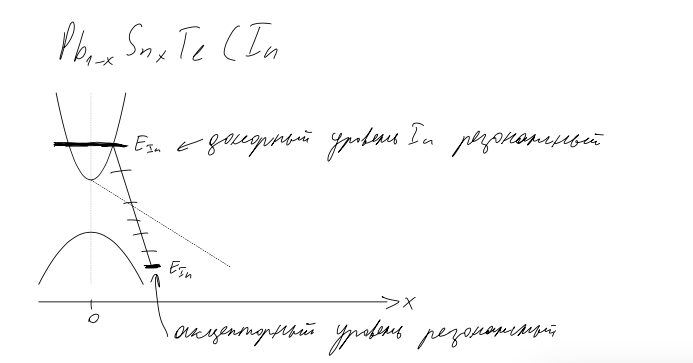 Pb₁₋ₓ Snₓ Te (In
E_In ← донорный уровень In резонансный
E_In
x
0
акцепторный уровень резонансный